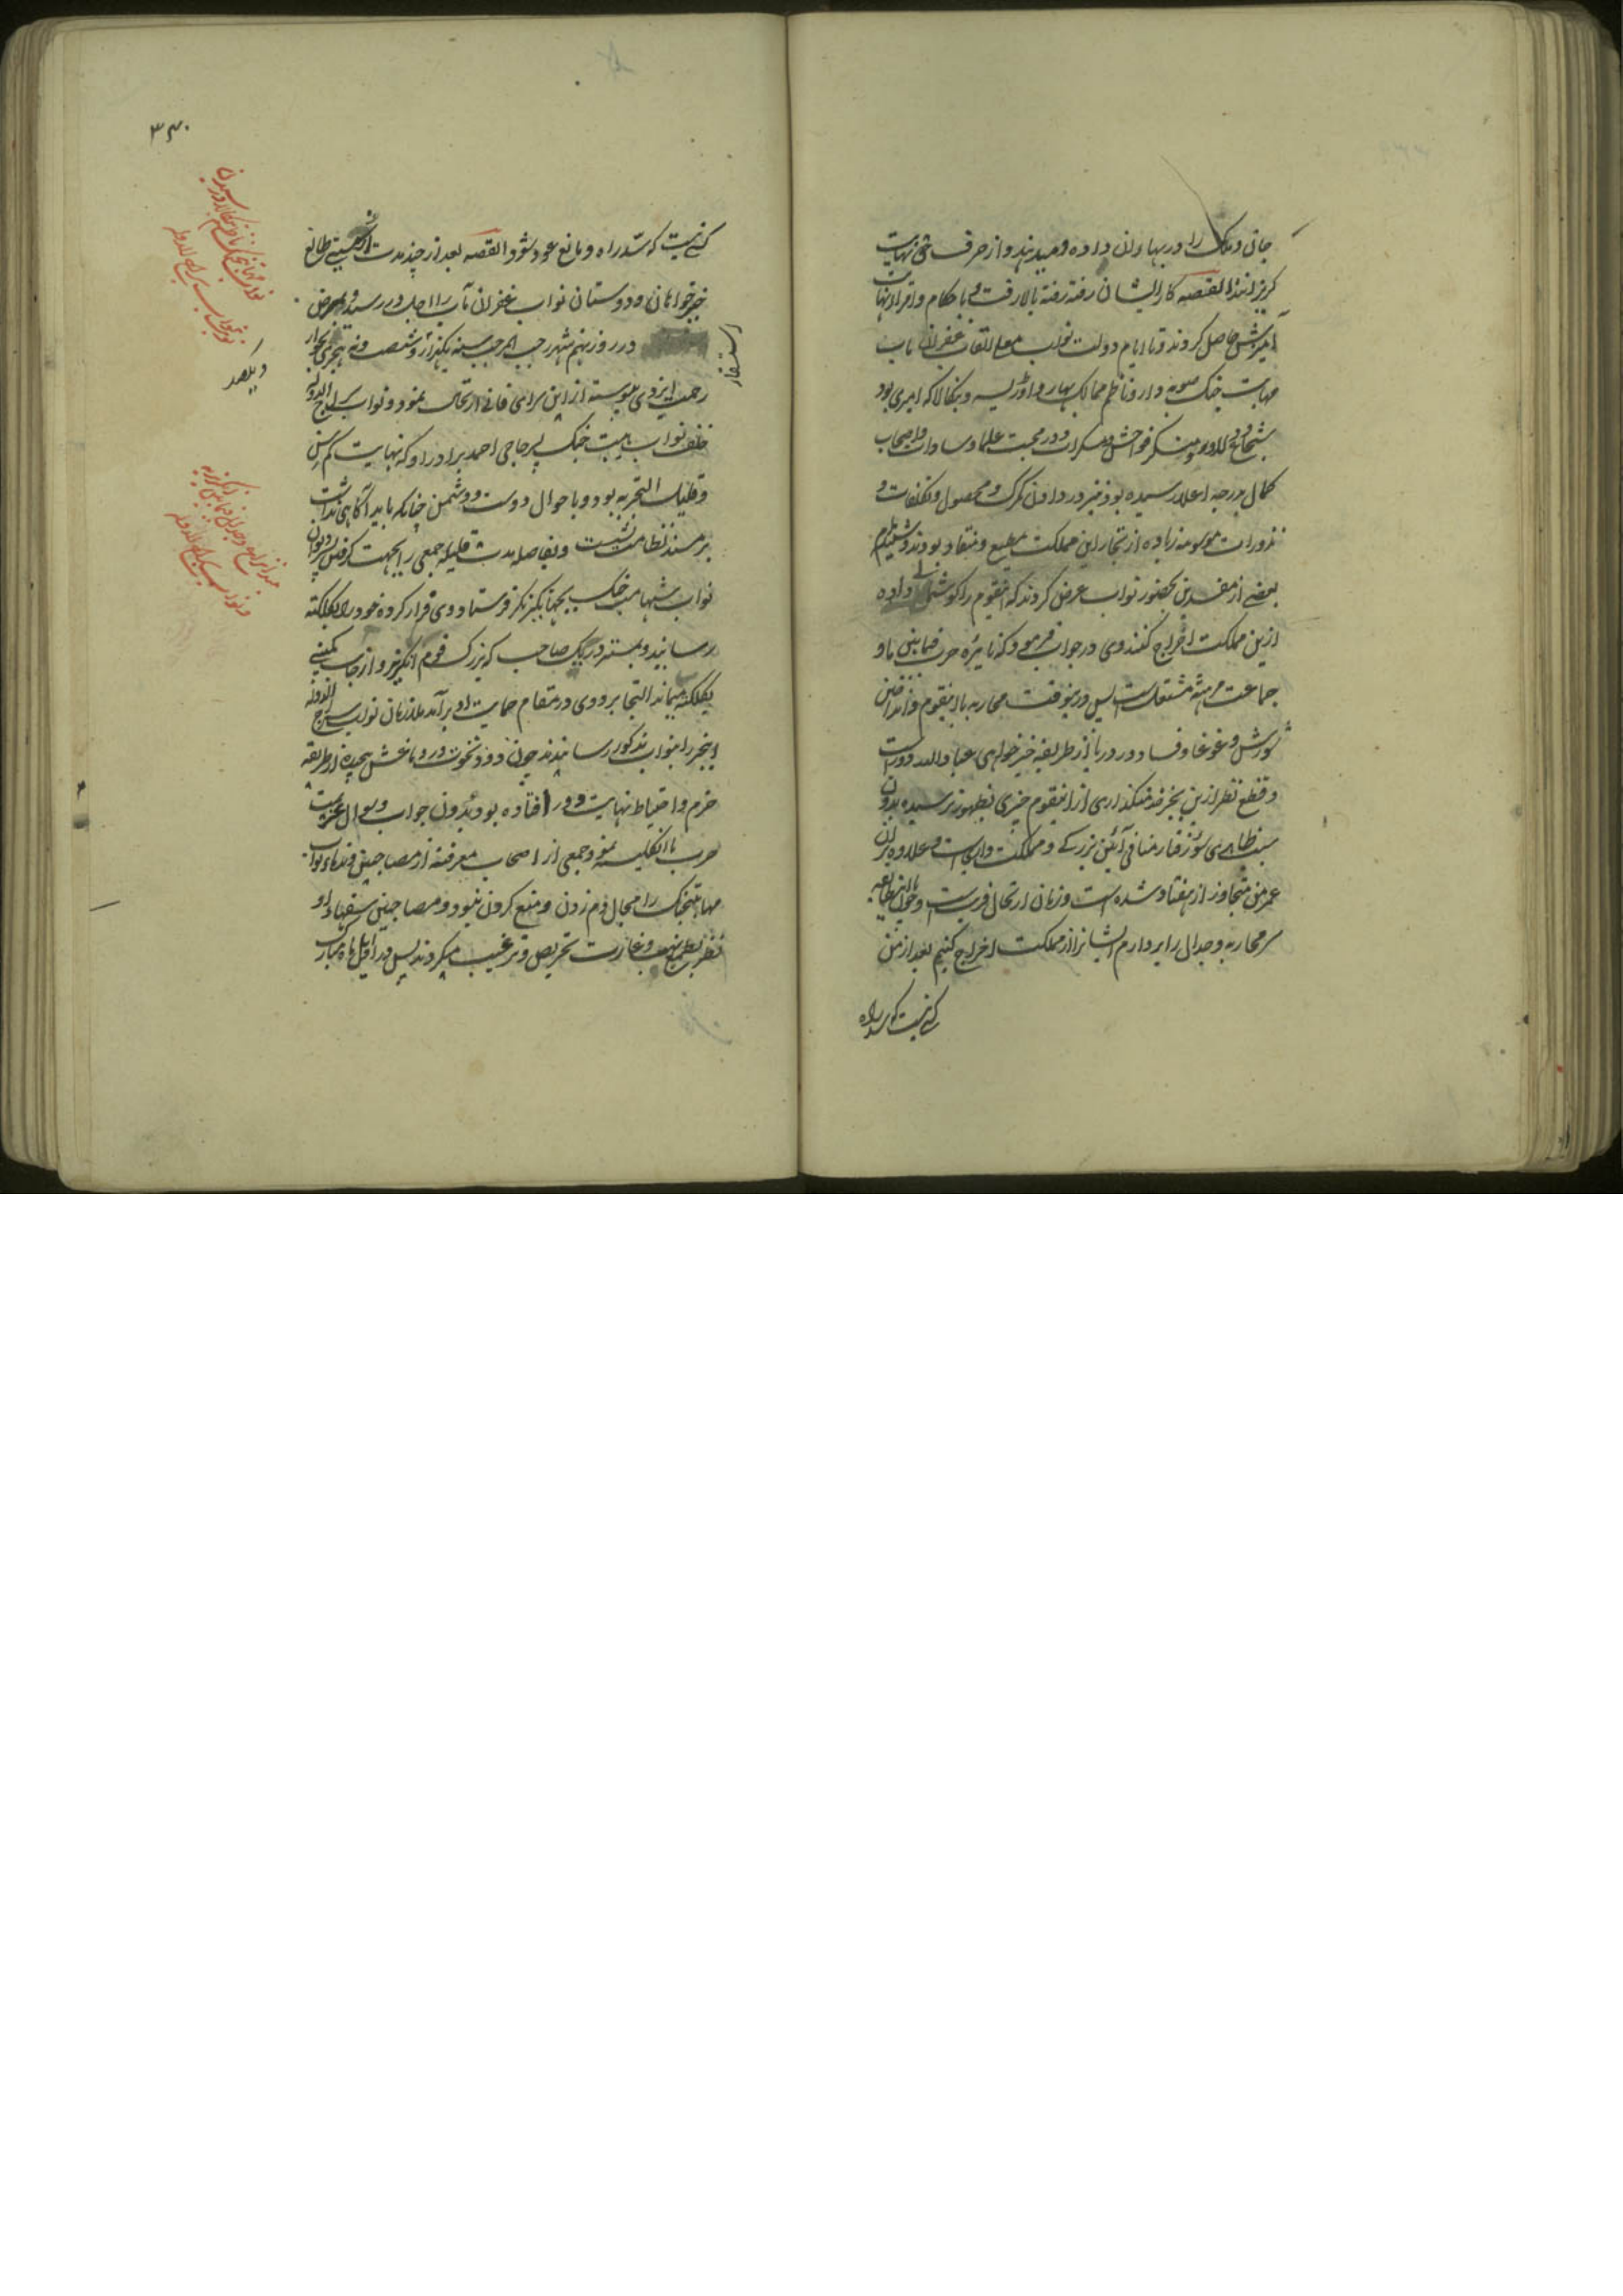 جان و ملک را در بهاء ان داده و میدهند و از حرف حق نهایت
کریزانند القصه کار ایشان رفته رفته بالا رفت و با حکام و امراء نهایت
امیزش حاصل کردند و تا ایام دولت نواب معلی القاب غفران ماب
مهابت جنک صوبه دار و ناظم ممالک بهار و اودیسه و بنکالا که امیری بود
شجاع و دلاور و منکر فواحش و مسکرات و در محبت علما و سادات و اصحاب
کمال بدرجه اعلا رسیده بود نیز در دادن کمرک و محصول و تکلفات و
نذورات مرسومه زیاده از تجار این مملکت مطیع و منقاد بودند و شنیدم
بعضی از مفسدین بحضور نواب عرض کردند که اینقوم را کوشمالی داده
ازین مملکت اخراج کنند وی در جواب فرمود که نایره حرب فیمابین ما و
جماعت مرهته مشتعل است پس درینوقت محاربه با اینقوم و انداختن
شورش و غوغا و فساد در دریا از طریقه خیرخواهی عباد الله دور است
و قطع نظر ازین بجز خدمتکذاری از اینقوم چیزی بظهور نرسیده بدون
سبب ظاهری سوء رفتار منافی آئین بزرکی و مملکت داری است و علاوه بران
عمر من متجاوز از هفتاد شده است و زمان ارتحال قریب است و چون با این طایفه
سر محاربه و جدال را بردارم و ایشانرا از مملکت اخراج کنیم بعد از من
کسی نیست که سد راه
۳۴۰
کسی نیست که سد راه و مانع عود شود القصه بعد از چند مدت از طالع
خیرخواهان و دوستان نواب غفران مآب را اجل در رسید و بمرض
استسقا
در روز نهم شهر رجب المرجب سنه یکهزار و شصت و نه هجری بجوار
رحمت ایزدی پیوسته از این سرای فانی ارتحال نمود و نواب سراج الدوله
خلف نواب هیبت جنک پسر حاجی احمد برادر او که نهایت کم سن
و قلیل التجربه بود و باحوال دوست و دشمن چنانکه باید آکاهی نداشت
بر مسند نظامت نشست و بفاصله مدت قلیله جمعی را بجهت کرفتن پسر دیوان
نواب شهامت جنک بجهانکیرنکر فرستاد و وی فرار کرده خود را بکلکته
رسانید و بمستر دریک صاحب که بزرک قوم انکریز و از جانب کمپنی
بکلکته میماند التجا برد و وی در مقام حمایت او برآمد ملازمان نواب سراج الدوله
اینخبر را بنواب مذکور رسانیدند چون دود نخوت در دماغش پیچیده از طریقه
حزم و احتیاط نهایت دور افتاده بود بدون جواب و سوال عزیمت
حرب با انکلیسه نمود جمعی از اصحاب معرفت از مصاحبین و ندماء نواب
مهابتجنک را مجال دم زدن و منع کردن نبود و مصاحبین سفهاء او
نظر بطمع نهب و غارت تحریص و ترغیب میکردند پس در اوایل ماه مبارک